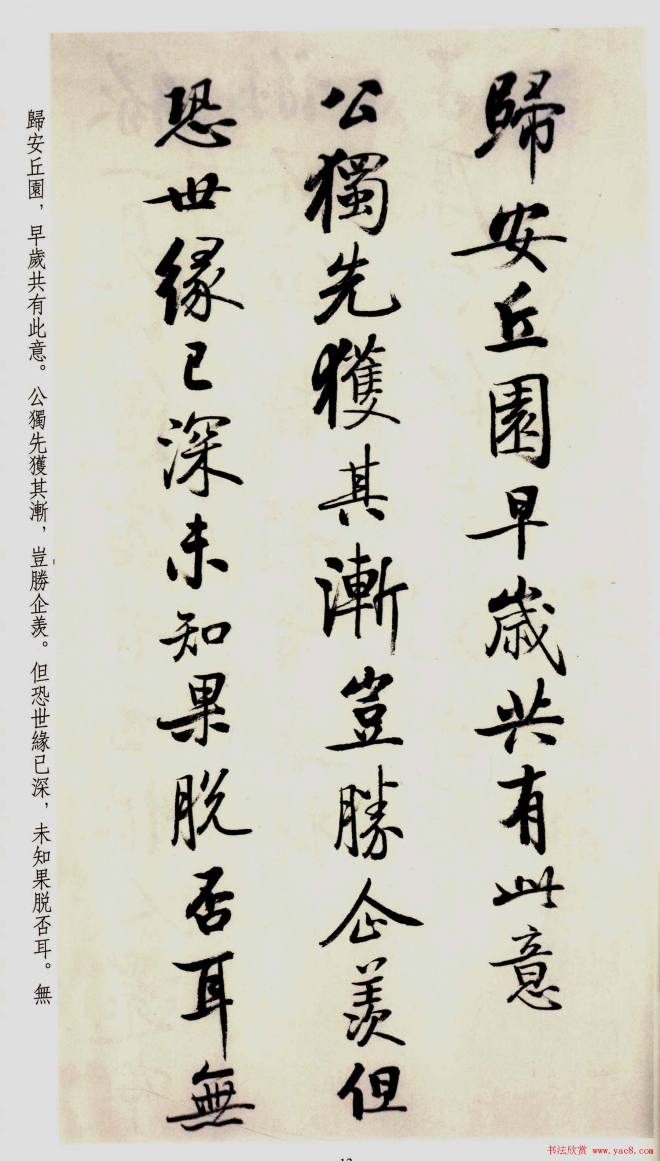 歸安丘園早歲共有此意
公獨先獲其漸豈勝企羨但
恐世緣已深未知果脱否耳無
歸安丘園，早歲共有此意。公獨先獲其漸，豈勝企羨。但恐世緣已深，未知果脱否耳。無
书法欣赏 www.yac8.com